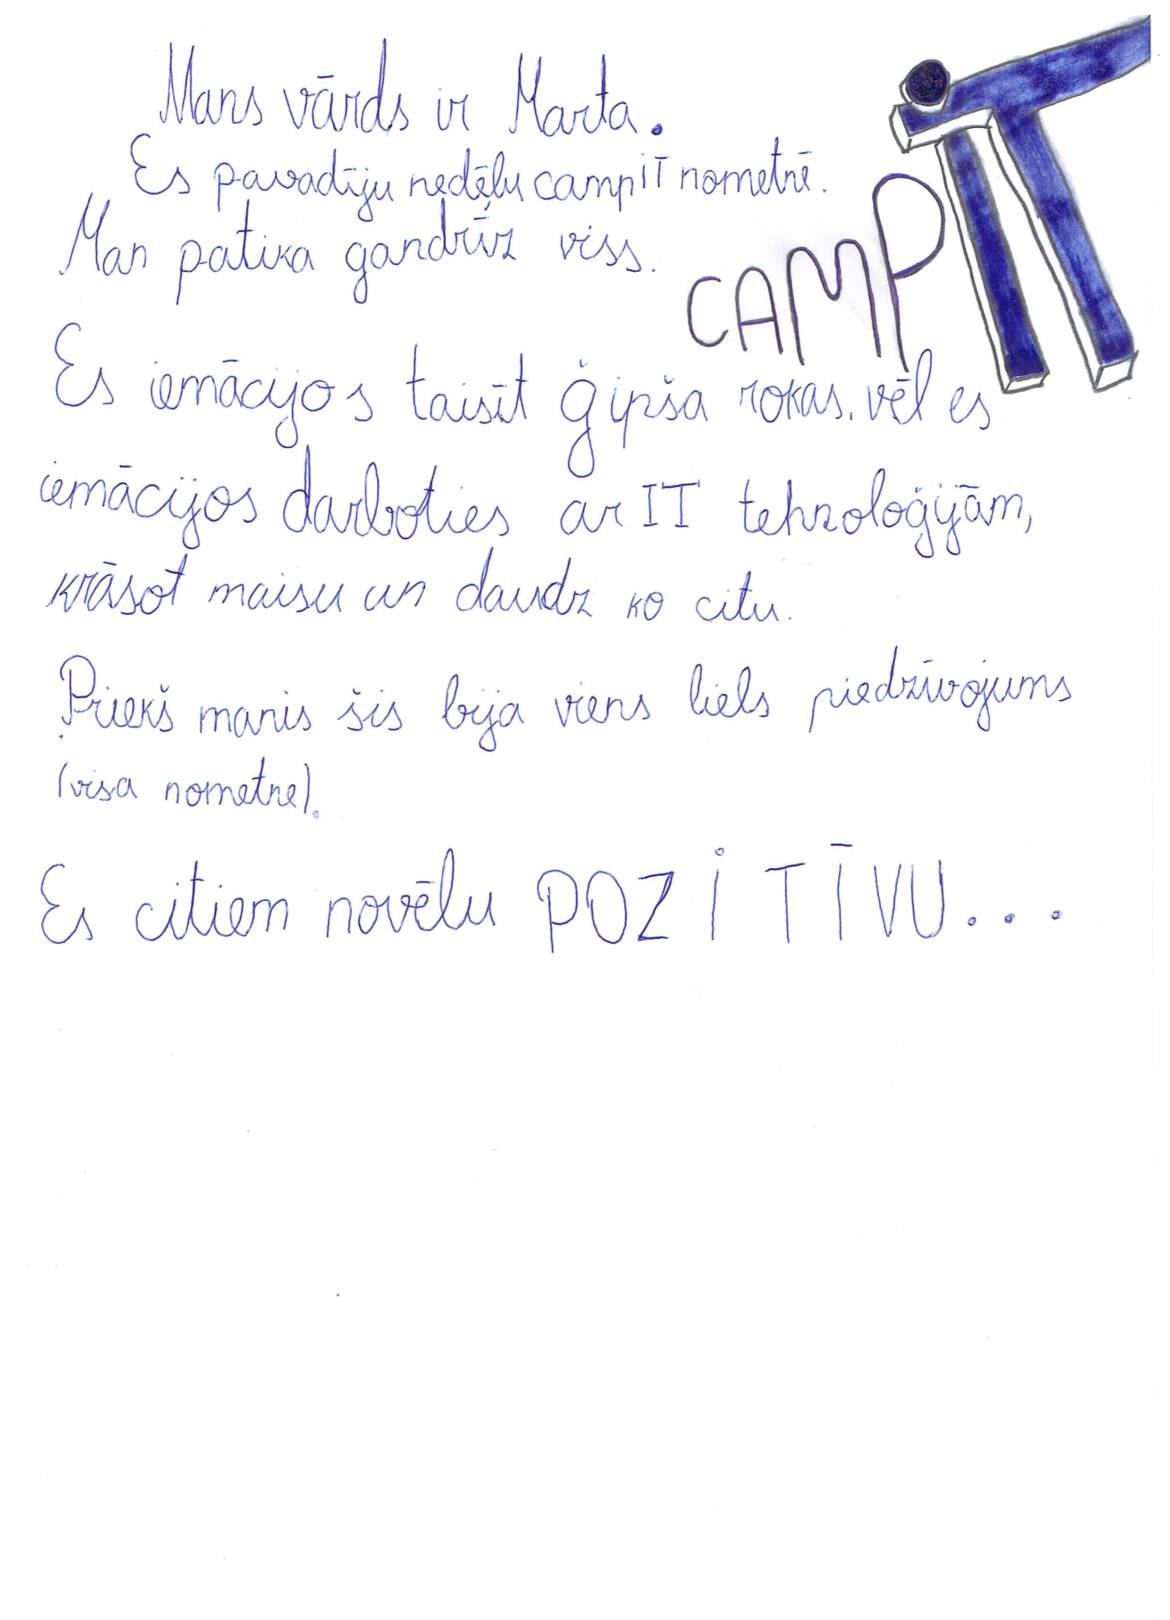 Mans vārds ir Marta.
Es pavadīju nedēļu campIT nometnē.
Man patika gandrīz viss.
CAMP IT
Es iemācijos taisīt ģipša rokas, vēl es
iemācijos darboties ar IT tehnoloģijām,
krāsot maisu un daudz ko citu.
Priekš manis šis bija viens liels piedzīvojums
(visa nometne).
Es citiem novēlu POZiTĪVU...